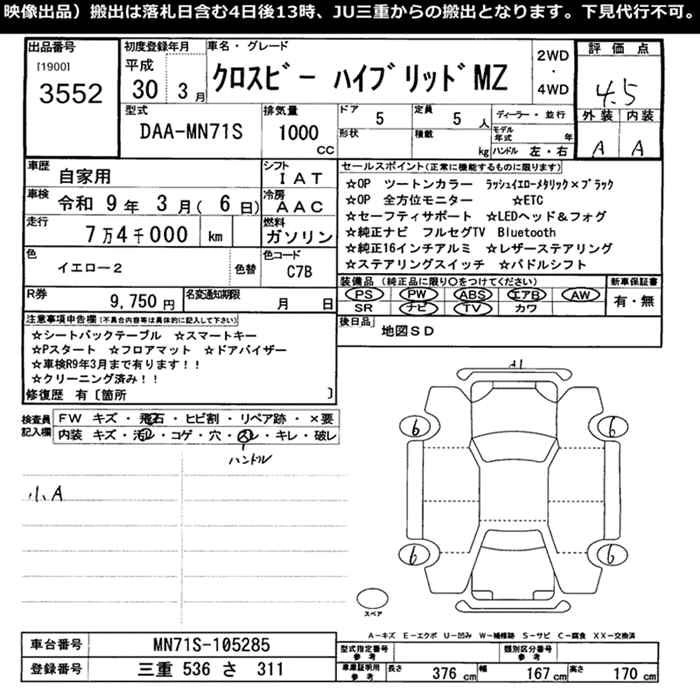 映像出品）搬出は落札日含む4日後13時、JU三重からの搬出となります。下見代行不可。
出品番号 初度登録年月 車名・グレード 2WD・4WD 評価点
[1900] 平成
3552 30 3月 クロスビー ハイブリッドMZ 4.5
型式 排気量 ドア 5 定員 5人 ディーラー・並行 外装 内装
DAA-MN71S 1000CC 形状 積載 kg モデル年式 年 A A
ハンドル 左・右
車歴 自家用 シフト IAT セールスポイント(正常に機能するものに限ります)
車検 令和 9年 3月( 6日) 冷房 AAC ☆OP ツートンカラー ラッシュイエローメタリック×ブラック
☆OP 全方位モニター ☆ETC
走行 7万4千000 km 燃料 ガソリン ☆セーフティサポート ☆LEDヘッド&フォグ
☆純正ナビ フルセグTV Bluetooth
☆純正16インチアルミ ☆レザーステアリング
色 イエロー2 色替 色コード C7B ☆ステアリングスイッチ ☆パドルシフト
R券 9,750円 名変通知期限 月 日 装備品(純正品に限り○をつけてください) 新車保証書
PS PW ABS エアB AW 有・無
SR ナビ TV カワ
注意事項申告欄(不具合内容等は具体的に記入して下さい) 後日品 地図SD
☆シートバックテーブル ☆スマートキー
☆Pスタート ☆フロアマット ☆ドアバイザー
☆車検R9年3月まで有ります!!
☆クリーニング済み!!
修復歴 有〔箇所 〕
検査員記入欄 FW キズ・飛石・ヒビ割・リペア跡・×要
内装 キズ・汚レ・コゲ・穴・スレ・キレ・破レ
ハンドル
小A
A1
6 6
6 6
スペア
A－キズ E－エクボ U－凹み W－補修跡 S－サビ C－腐食 XX－交換済
車台番号 MN71S-105285 型式指定番号 参考 類別区分番号 参考
登録番号 三重 536 さ 311 車庫証明用 参考 長さ 376cm 幅 167cm 高さ 170cm